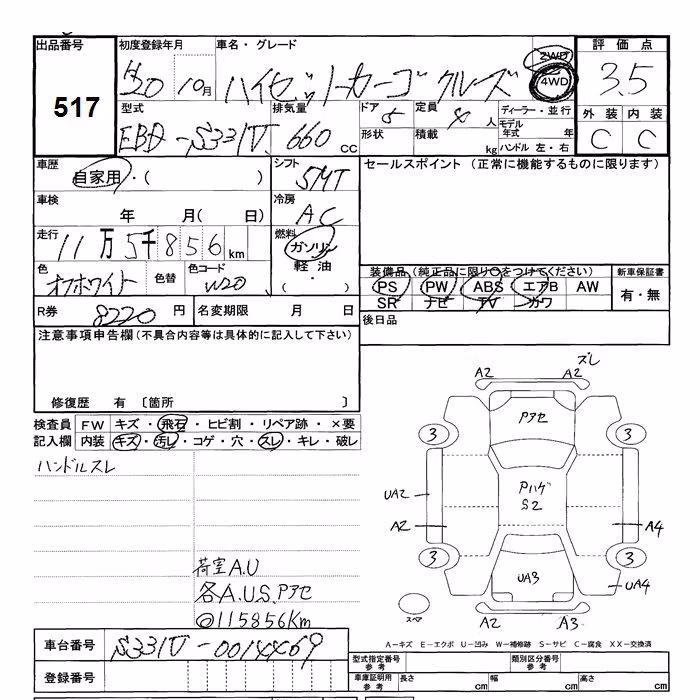 出品番号 517
初度登録年月 H20 10月
車名・グレード ハイゼットカーゴ クルーズ
2WD 4WD
評価点 3.5
外装 内装
C C
型式 EBD-S331V
排気量 660 cc
ドア 5 形状
定員 4 人 積載 kg
ディーラー・並行
モデル年式 年
ハンドル 左・右
車歴 自家用・( )
シフト 5MT
セールスポイント (正常に機能するものに限ります)
車検 年 月( 日)
冷房 AC
走行 11万5千856km
燃料 ガソリン 軽油 ( ・ )
色 オフホワイト 色替 色コード W20
装備品(純正品に限り○をつけてください) 新車保証書
PS PW ABS エアB AW 有・無
SR ナビ TV カワ
R券 8220円 名変期限 月 日
後日品
注意事項申告欄(不具合内容等は具体的に記入して下さい)
修復歴 有 〔箇所 〕
検査員 FW キズ・飛石・ヒビ割・リペア跡・×要
記入欄 内装 キズ・汚レ・コゲ・穴・スレ・キレ・破レ
ハンドルスレ
荷室A.U
各A.U.S.Pアセ
◎115856Km
ズレ
A2 A2
Pアセ
3 3
Pハゲ
S2
UA2
A2 A4
3 3
UA3
UA4
スペア
A2 A3
A-キズ E-エクボ U-凹み W-補修跡 S-サビ C-腐食 XX-交換済
車台番号 S331V-0014469
登録番号
型式指定番号 参考 類別区分番号 参考
車庫証明用 参考 長さ cm 幅 cm 高さ cm